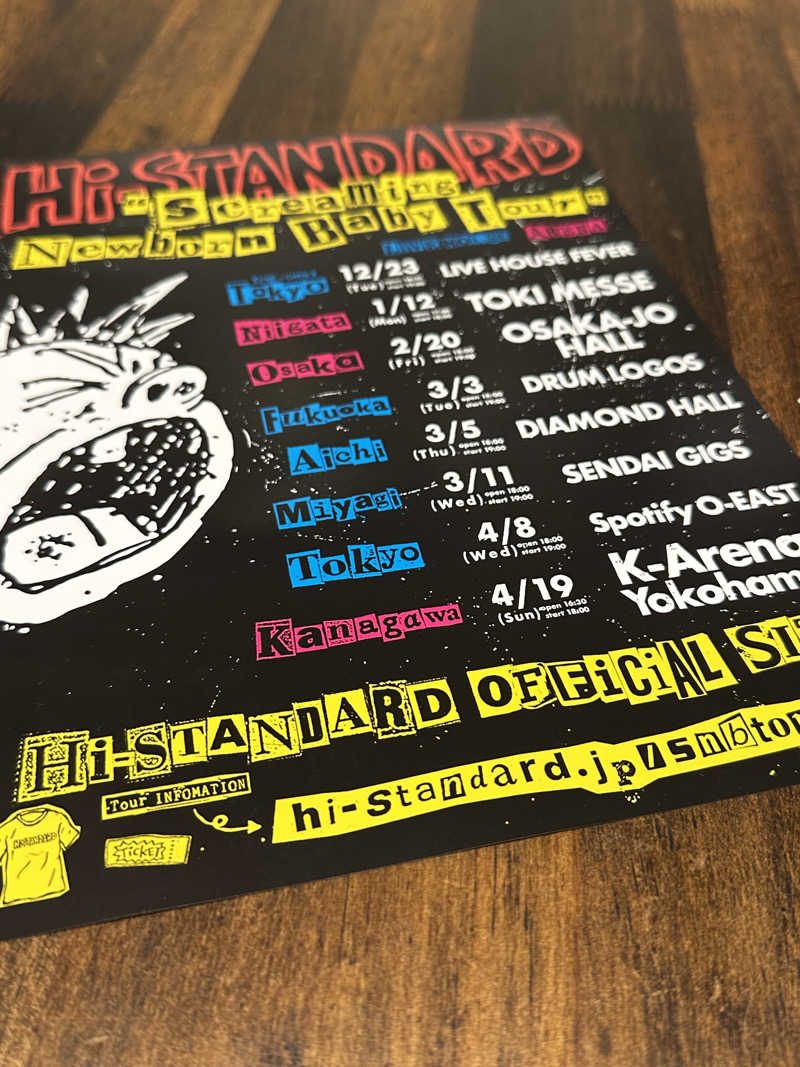 Hi-STANDARD
"Screaming
Newborn Baby Tour"
LIVE HOUSE ARENA
Tokyo 12/23 (Tue) LIVE HOUSE FEVER
Niigata 1/12 (Mon) TOKI MESSE
Osaka 2/20 (Fri) open 18:00 start 19:00 OSAKA-JO HALL
Fukuoka 3/3 (Tue) open 18:00 start 19:00 DRUM LOGOS
Aichi 3/5 (Thu) open 18:00 start 19:00 DIAMOND HALL
Miyagi 3/11 (Wed) open 18:00 start 19:00 SENDAI GIGS
Tokyo 4/8 (Wed) open 18:00 start 19:00 Spotify O-EAST
Kanagawa 4/19 (Sun) open 16:30 start 18:00 K-Arena Yokoham
Hi-STANDARD OFFiCiAL SI
Tour INFOMATION
hi-standard.jp/snbtou
TICKET